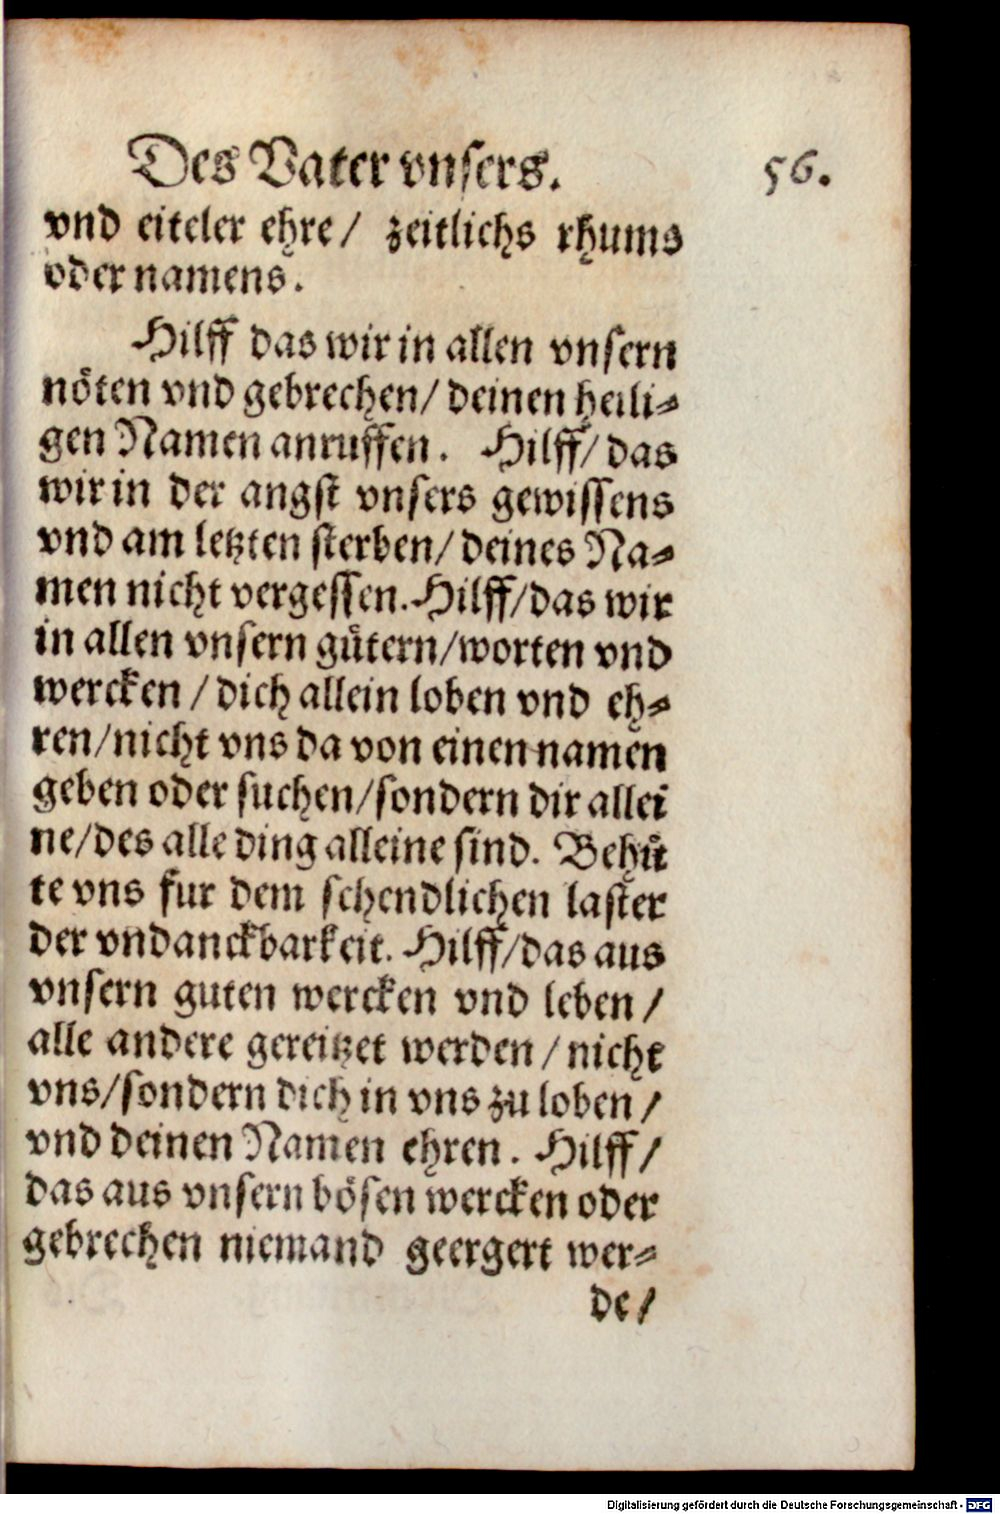 Des Vater vnsers. 56.
vnd eiteler ehre/ zeitlichs rhums
oder namens.
Hilff das wir in allen vnsern
nöten vnd gebrechen/ deinen heili⸗
gen Namen anruffen. Hilff/ das
wir in der angst vnsers gewissens
vnd am letzten sterben/ deines Na⸗
men nicht vergessen. Hilff/das wir
in allen vnsern gütern/worten vnd
wercken /dich allein loben vnd eh⸗
ren/nicht vns da von einen namen
geben oder suchen/sondern dir allei
ne/des alle ding alleine sind. Behü
te vns fur dem schendlichen laster
der vndanckbarkeit. Hilff/das aus
vnsern guten wercken vnd leben /
alle andere gereitzet werden /nicht
vns/sondern dich in vns zu loben /
vnd deinen Namen ehren. Hilff/
das aus vnsern bösen wercken oder
gebrechen niemand geergert wer⸗
de /
Digitalisierung gefördert durch die Deutsche Forschungsgemeinschaft - DFG